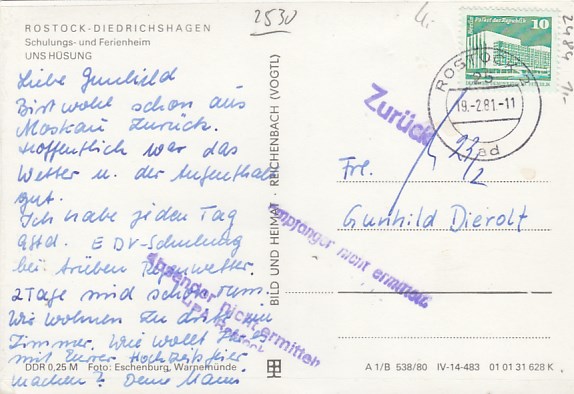 2530
ROSTOCK-DIEDRICHSHAGEN
Schulungs- und Ferienheim
UNS HÜSUNG
Liebe Gunhild
Bist wohl schon aus
Moskau zurück.
Hoffentlich war das
Wetter u. der Aufenthalt
gut.
Ich habe jeden Tag
8Std. EDV-Schulung
bei trüben Regenwetter.
2 Tage sind schon rum.
Wir wohnen zu dritt im
Zimmer. Wie wollt Ihr es
mit Eurer Hochzeitsfeier
machen? Deine
DDR 0,25 M Foto: Eschenburg, Warnemünde
BILD UND HEIMAT · REICHENBACH (VOGTL)
Palast der Republik
10
DDR
ROSTOCK
25
19.-2.81.-11
2484 1,-
Zurück
23/2
Frl.
Gunhild Dierolt
Empfänger nicht ermittelt
Absender nicht ermitteln
A 1/B 538/80 IV-14-483 01 01 31 628 K